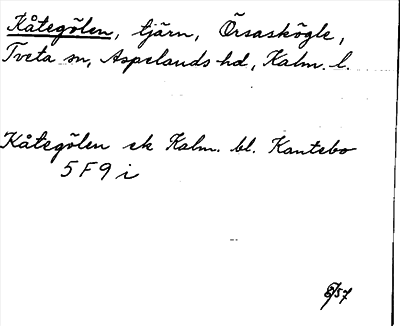 Kåtegölen, tjärn, Örsaskögle,
Tveta sn, Aspelands hd, Kalm. l.
Kåtegölen ek Kalm. bl. Kantebo
5 F 9 i